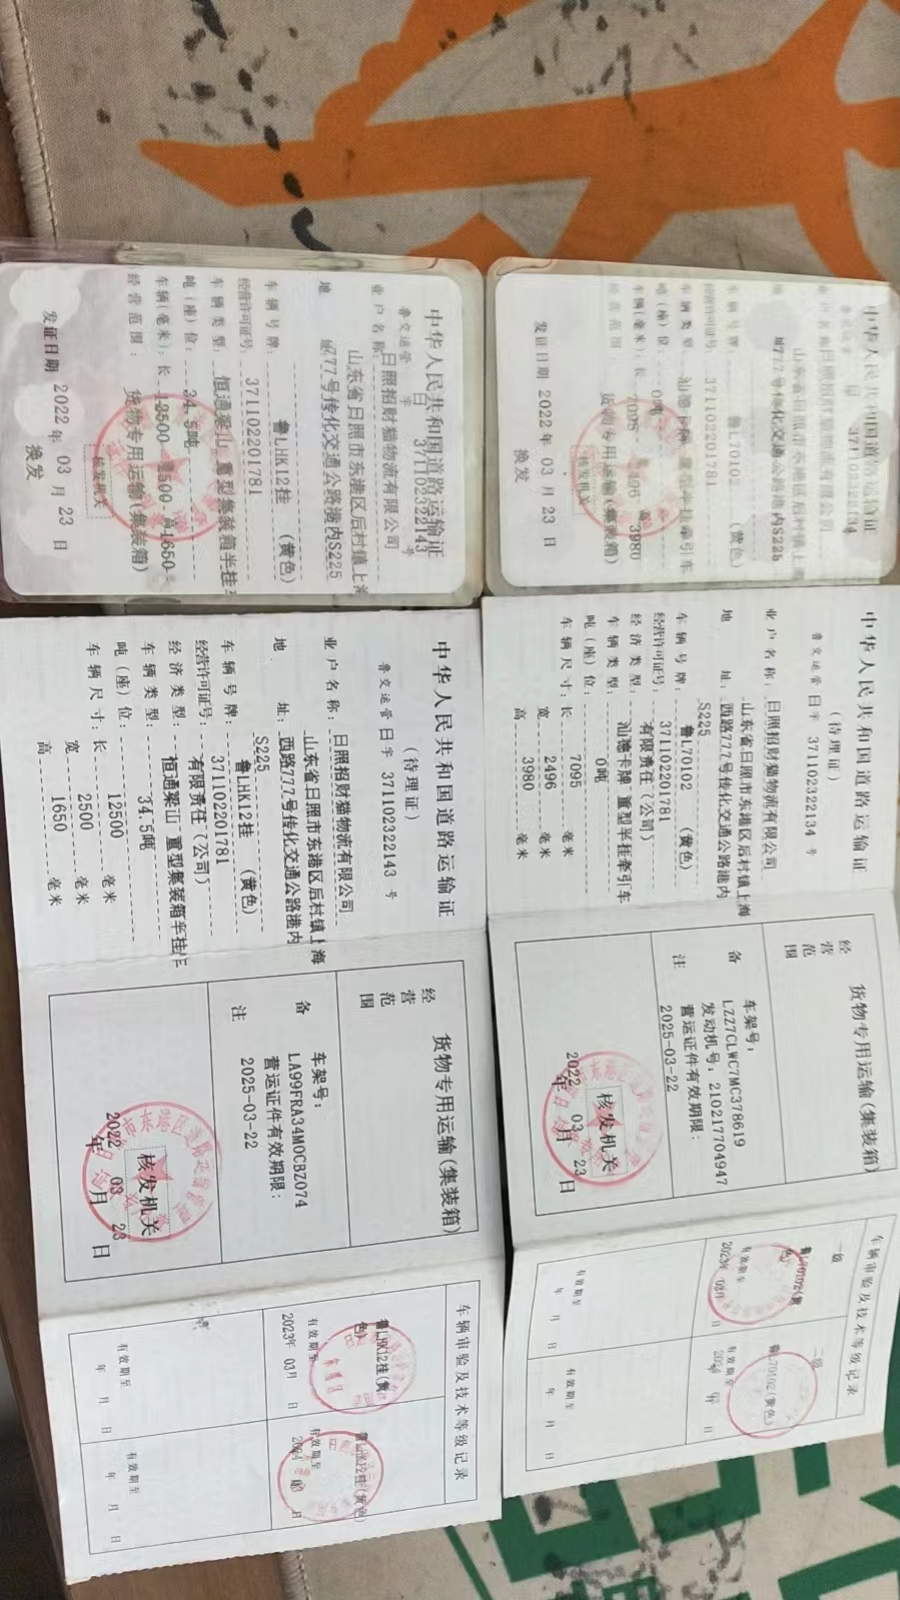 中华人民共和国道路运输证
鲁交运管 日 字 371102322143 号
业户名称: 日照招财猫物流有限公司
山东省日照市东港区后村镇上海
地
777号传化交通公路港内S225
车辆号牌: 鲁LHK12挂 (黄色)
经营许可证号: 371102201781
车辆类型: 恒通梁山 重型集装箱半挂
吨(座)位: 34.5吨
车辆(毫米): 长 12500 2500 高1650
经营范围: 货物专用运输(集装箱)
核发机关
发证日期 2022 年 03 月 23 日
换发
中华人民共和国道路运输证
业户名称
山东省日照市东港区后村镇上海
777号传化交通公路港内S225
车辆号牌: 鲁L70102 (黄色)
经营许可证号: 371102201781
车辆类型: 汕德卡牌 重型半挂牵引车
吨(座)位: 0吨
车辆(毫米): 长 7095 2496 高 3980
货物专用运输(集装箱)
核发机关
发证日期 2022 年 03 月 23 日
换发
中华人民共和国道路运输证
(待理证)
鲁交运管 日 字 371102322143 号
业户名称: 日照招财猫物流有限公司
山东省日照市东港区后村镇上海
地 址: 西路777号传化交通公路港内
S225
车辆号牌: 鲁LHK12挂 (黄色)
经营许可证号: 371102201781
经济类型: 有限责任(公司)
车辆类型: 恒通梁山 重型集装箱半挂车
吨(座)位: 34.5吨
车辆尺寸: 长 12500 毫米
宽 2500 毫米
高 1650 毫米
经营范围 货物专用运输(集装箱)
备注
车架号:
LA99FRA34M0CBZ074
营运证件有效期限:
2025-03-22
核发机关
2022 年 03 月 23 日
车辆审验及技术等级记录
鲁LHK12挂(黄色)
有效期至
2023年 03月 日
有效期至
2024
日
有效期至
年 月 日
有效期至
年 月 日
中华人民共和国道路运输证
(待理证)
鲁交运管 日 字 371102322134 号
业户名称: 日照招财猫物流有限公司
山东省日照市东港区后村镇上海
地 址: 西路777号传化交通公路港内
S225
车辆号牌: 鲁L70102 (黄色)
经营许可证号: 371102201781
经济类型: 有限责任(公司)
车辆类型: 汕德卡牌 重型半挂牵引车
吨(座)位: 0吨
车辆尺寸: 长 7095 毫米
宽 2496 毫米
高 3980 毫米
经营范围 货物专用运输(集装箱)
备注
车架号:
LZZ7CLWC7MC378619
发动机号: 210217704947
营运证件有效期限:
2025-03-22
核发机关
2022 年 03 月 23 日
车辆审验及技术等级记录
一级
鲁L70102(黄色)
有效期至
2023年 03月
二级
鲁L70102(黄色)
有效期至
日
有效期至
年 月 日
有效期至
年 月 日